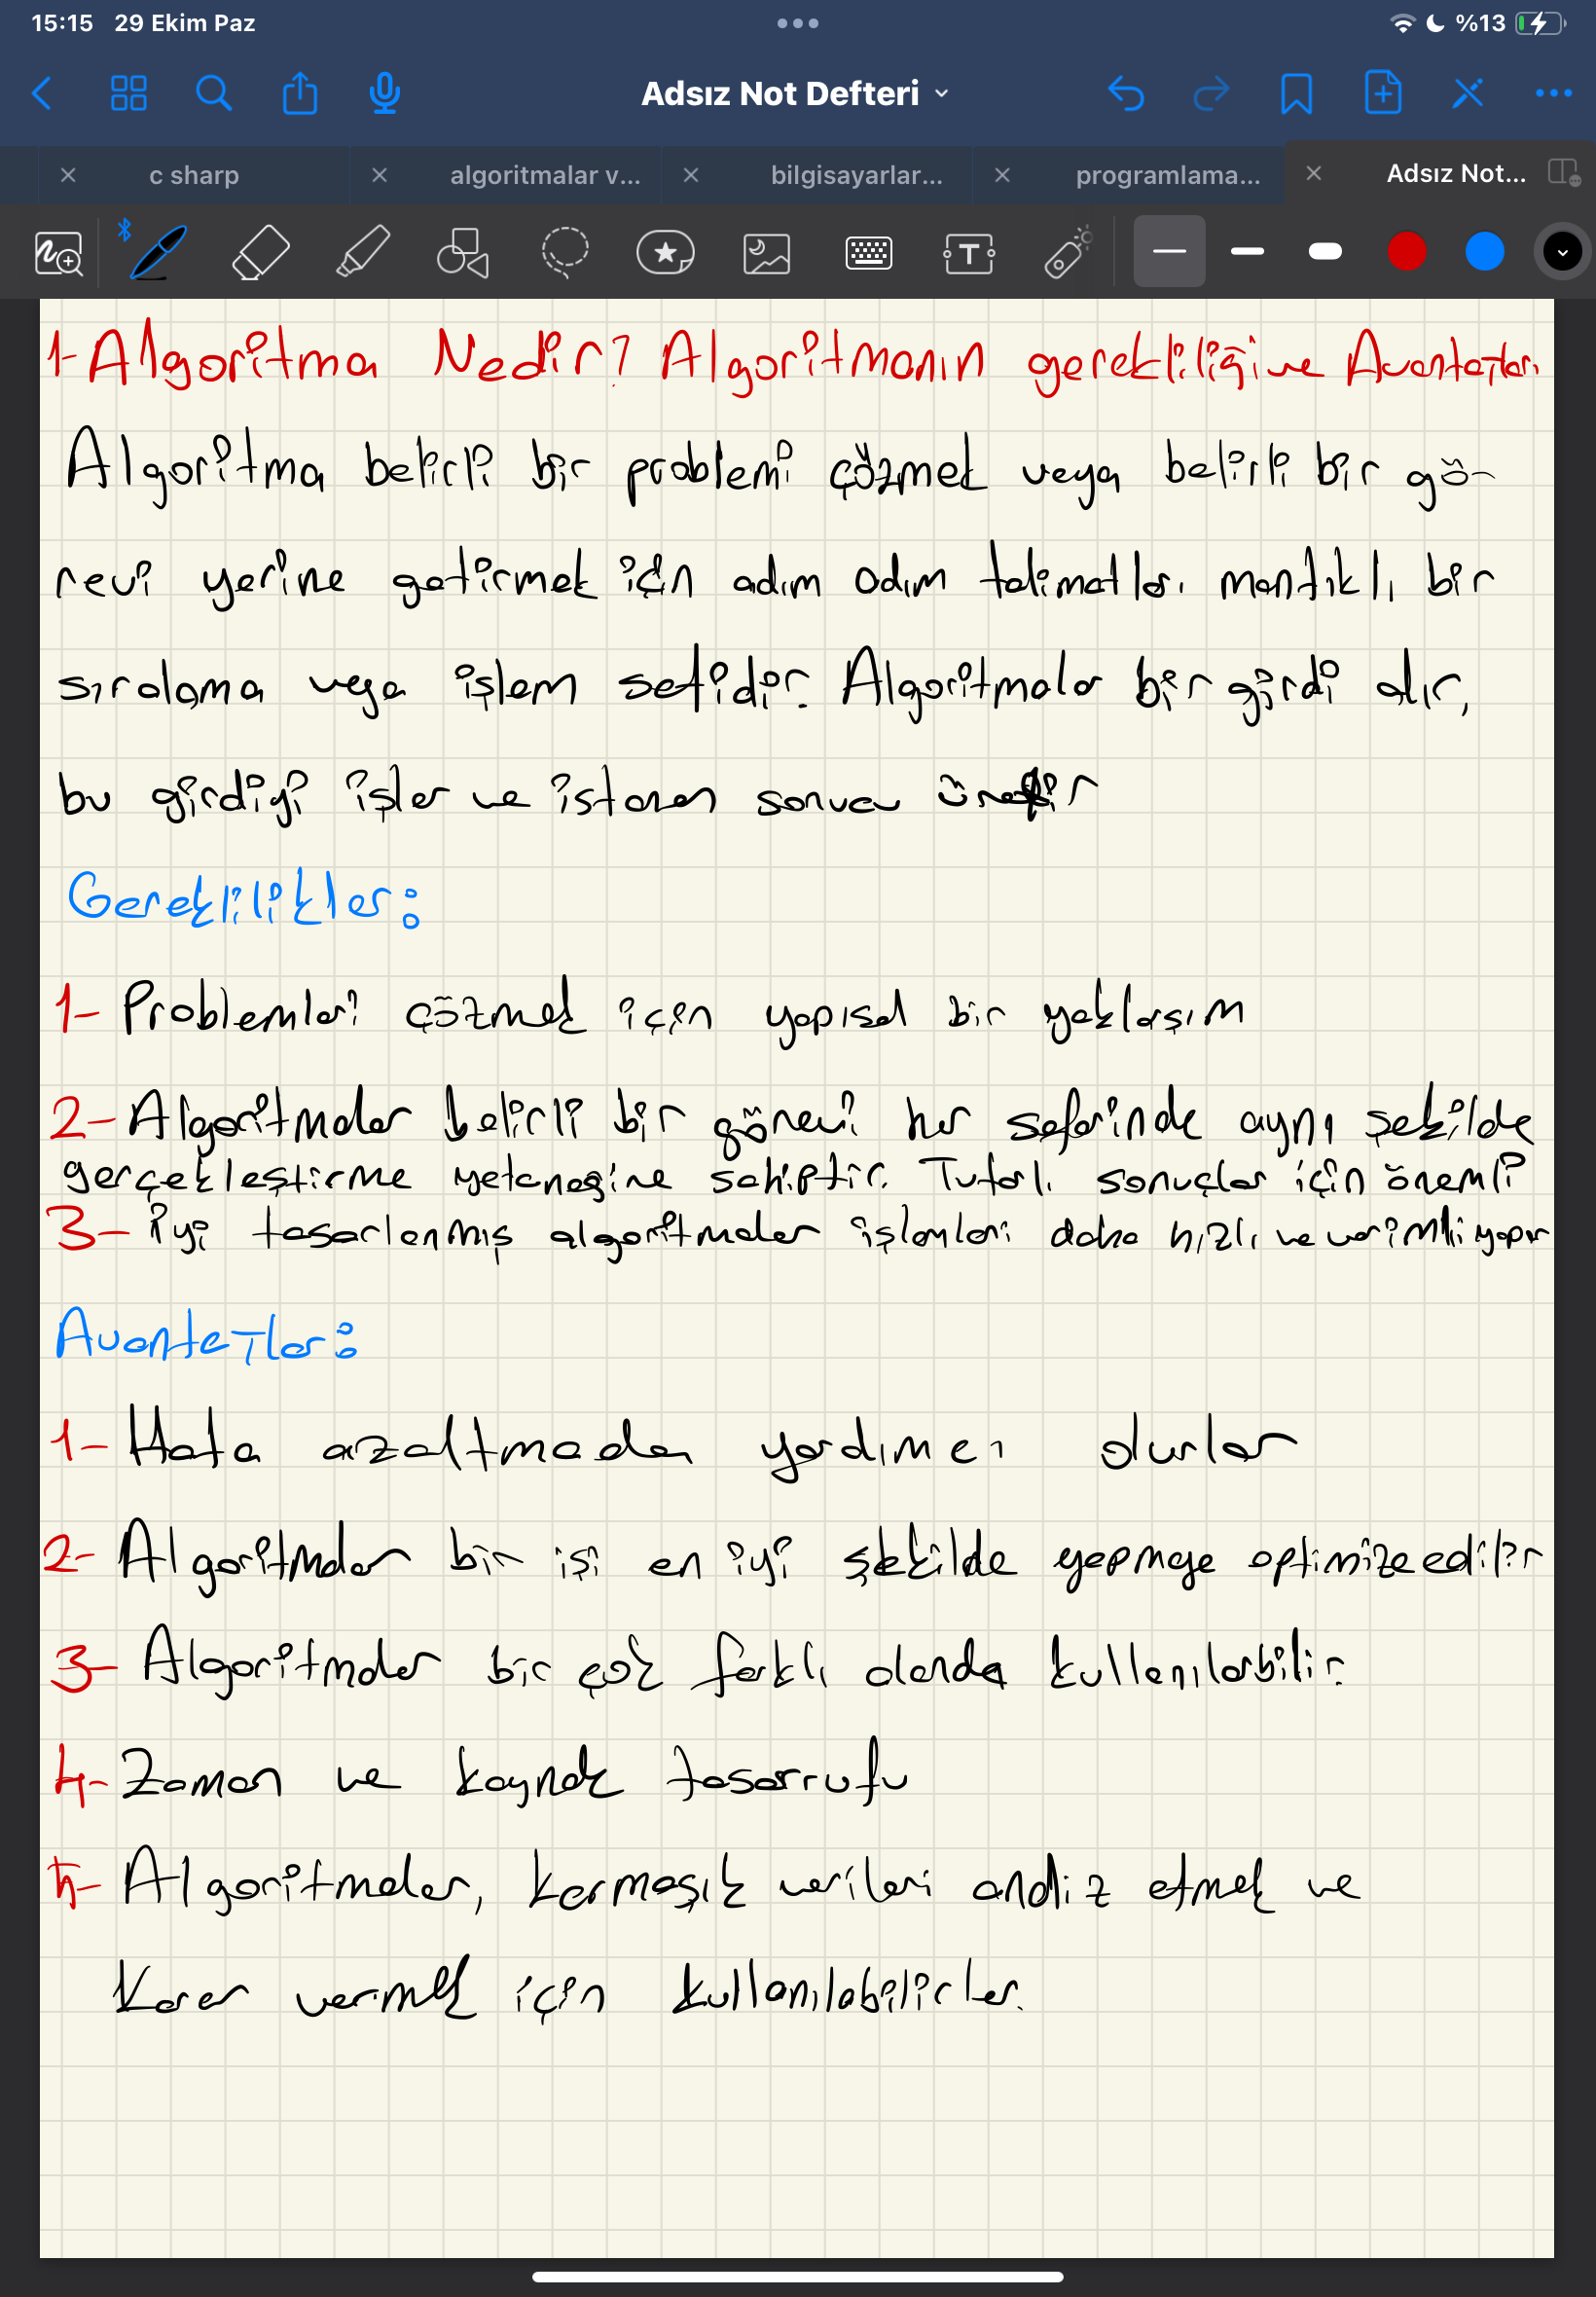 15:15 29 Ekim Paz %13
Adsız Not Defteri
c sharp algoritmalar v... bilgisayarlar... programlama... Adsız Not...
1- Algoritma Nedir? Algoritmanın gerekliliği ve Avantajları
Algoritma belirli bir problemi çözmek veya belirli bir gö-
revi yerine getirmek için adım adım talimatları mantıklı bir
sıralama veya işlem setidir. Algoritmalar bir girdi alır,
bu girdiyi işler ve istenen sonucu üretir
Gereklilikler:
1- Problemleri çözmek için yapısal bir yaklaşım
2- Algoritmalar belirli bir görevi her seferinde aynı şekilde
gerçekleştirme yeteneğine sahiptir. Tutarlı sonuçlar için önemli
3- iyi tasarlanmış algoritmalar işlemleri daha hızlı ve verimli yapar
Avantajlar:
1- Hata azaltmada yardımcı olurlar
2- Algoritmalar bir işi en iyi şekilde yapmaya optimize edilir
3- Algoritmalar bir çok farklı alanda kullanılabilir.
4- Zaman ve kaynak tasarrufu
5- Algoritmalar, karmaşık verileri analiz etmek ve
Karar vermek için kullanılabilirler.